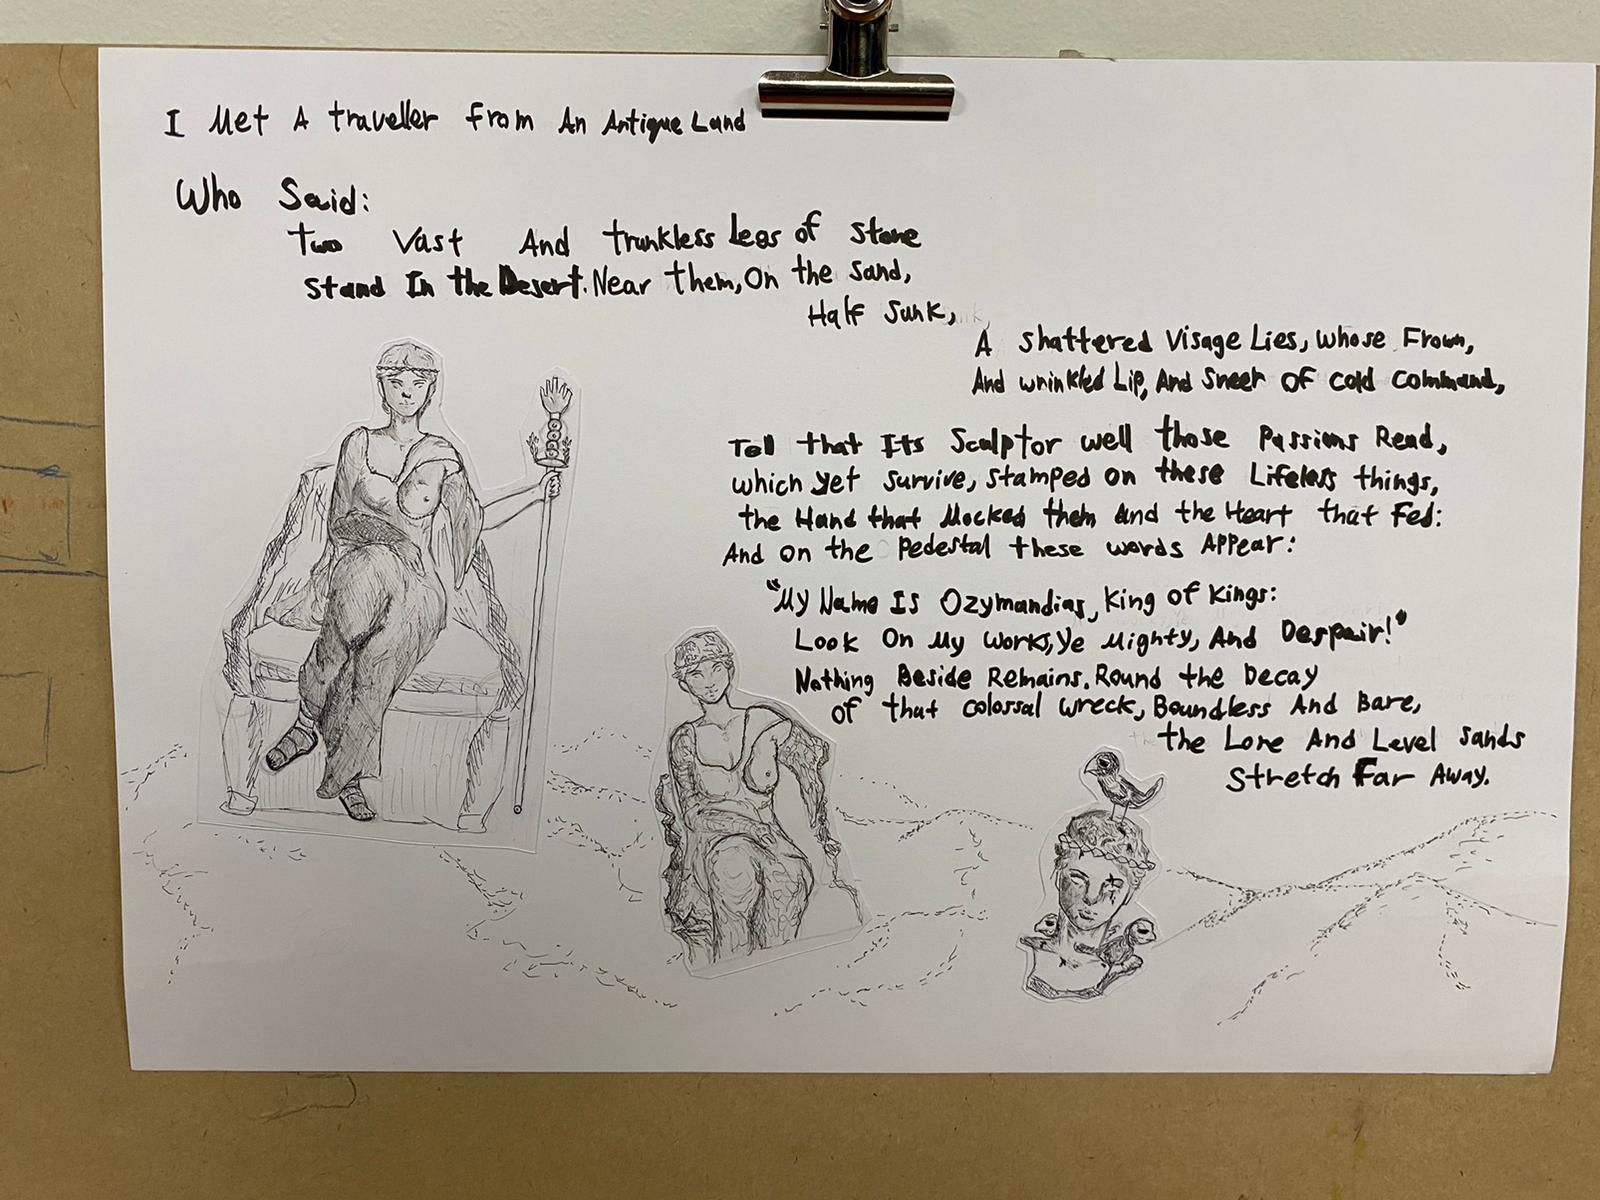 I Met A traveller From An Antique Land
Who Said:
Two Vast And trunkless Legs of Stone
Stand In the Desert. Near them, On the Sand,
Half Sunk,
A Shattered Visage Lies, Whose Frown,
And wrinkled Lip, And Sneer Of cold command,
Tell that Its Sculptor well those Passions Read,
which yet Survive, stamped on these Lifeless things,
the Hand that Mocked them And the Heart that Fed:
And on the Pedestal these words Appear:
"My Name Is Ozymandias, King of Kings:
Look On My Works, Ye Mighty, And Despair!"
Nothing Beside Remains. Round the Decay
of that colossal wreck, Boundless And Bare,
the Lone And Level Sands
Stretch Far Away.